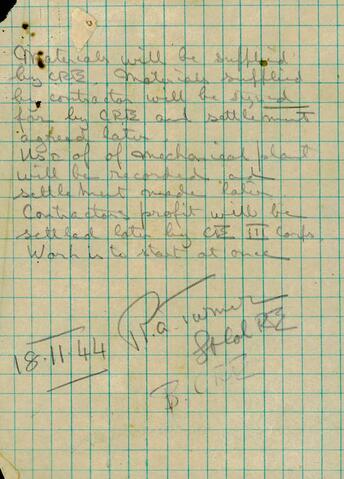 Materials will be supplied
by CRE. Materials supplied
by contractor will be signed
for by CRE and settlement
agreed later
Use of of mechanical plant
will be recorded and
settlement made later
Contractors profit will be
settled later by CE III Corps.
Work is to start at once
18.11.44
Turner
RE
CRE